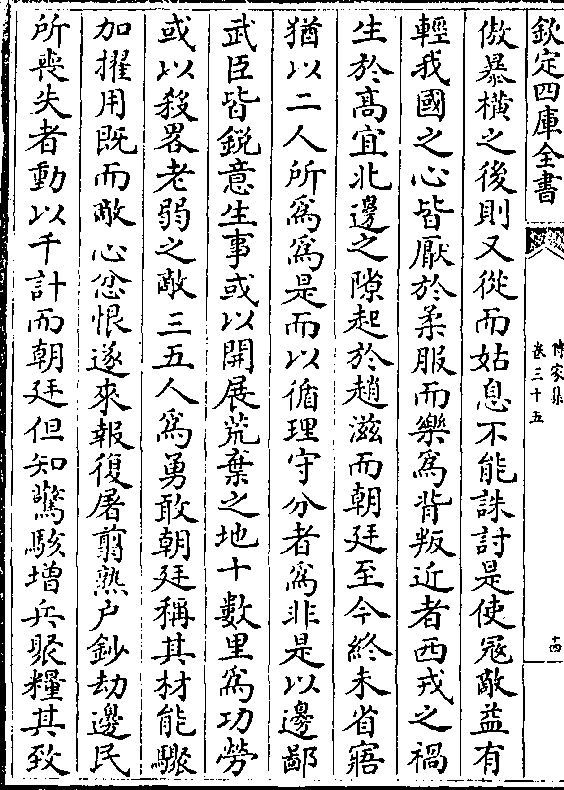 欽定四庫全書
傳家集
卷三十五
十四
傲暴橫之後則又從而姑息不能誅討是使冦敵益有
輕我國之心皆厭於柔服而樂為背叛近者西戎之禍
生於高宜北邊之隙起於趙滋而朝廷至今終未省寤
猶以二人所為為是而以循理守分者為非是以邊鄙
武臣皆鋭意生事或以開展荒棄之地十數里為功勞
或以殺畧老弱之敵三五人為勇敢朝廷稱其材能驟
加擢用既而敵心忿恨遂來報復屠翦熟户鈔劫邊民
所喪失者動以千計而朝廷但知驚駭增兵聚糧其致